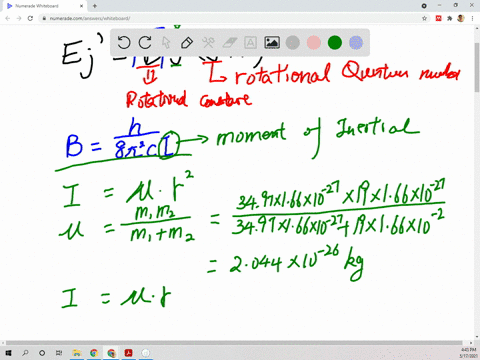 Numerade Whiteboard
numerade.com/answers/whiteboard/
Update
Ej' =
rotational Quantum number
Rotational constant
B = h / 8π²cI → moment of Inertial
I = μ.r²
μ = m₁m₂ / m₁+m₂ = 34.97×1.66×10⁻²⁷ ×19×1.66×10⁻²⁷ / 34.97×1.66×10⁻²⁷+19×1.66×10⁻²
= 2.044 ×10⁻²⁶ kg
I = μ.r
4:45 PM
5/17/2021